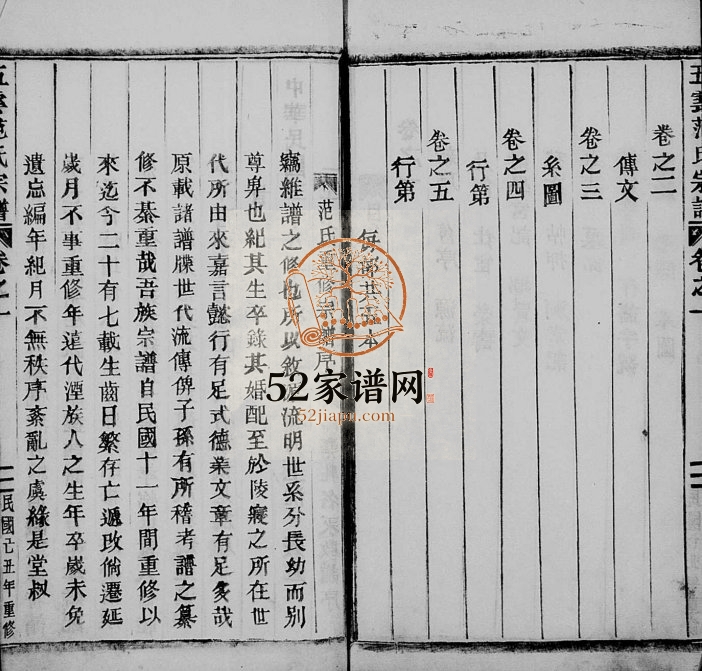 五雲范氏宗譜 卷之一
卷之二
傳文
卷之三
系圖
卷之四
行第
卷之五
行第
每部共五本
范氏重修宗譜序
竊維譜之修也所以敘源流明世系分長幼而別
尊卑也紀其生卒錄其婚配至於陵寢之所在世
代所由來嘉言懿行有足式德業文章有足多哉
原載諸譜牒世代流傳俾子孫有所稽考譜之纂
修不綦重哉吾族宗譜自民國十一年間重修以
來迄今二十有七載生齒日繁存亡遞改倘遷延
歲月不事重修年遠代湮族人之生年卒歲未免
遺忘編年紀月不無秩序紊亂之虞緣是堂叔
五雲范氏宗譜 卷之一 二 民國己丑年重修
52家谱网
52jiapu.com